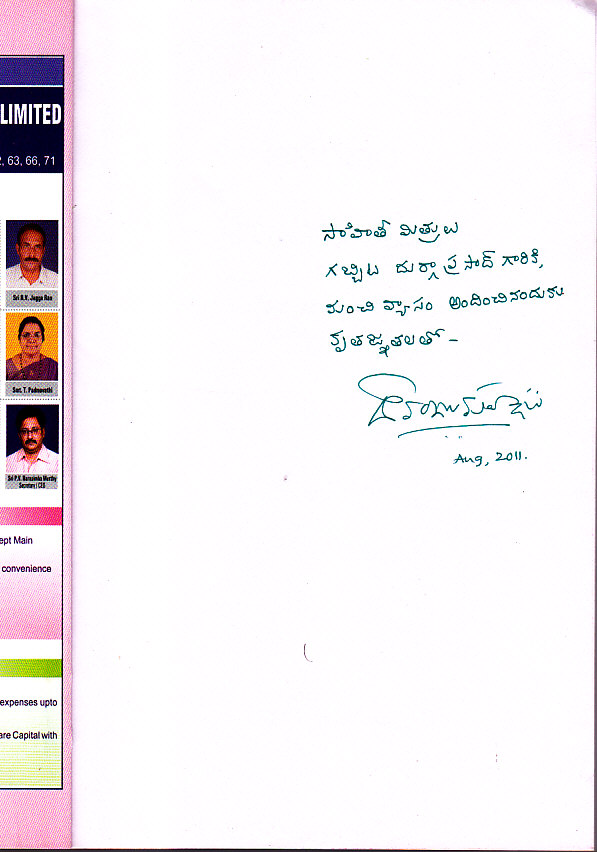 LIMITED
2, 63, 66, 71
Sri R.V. Jagga Rao
Smt. T. Padmavathi
Secretary / CEO
ept Main
convenience
expenses upto
are Capital with
సాహితీ మిత్రులు
గబ్బిట దుర్గా ప్రసాద్ గారికి,
మంచి వ్యాసం అందించినందుకు
కృతజ్ఞతలతో -
Aug, 2011.